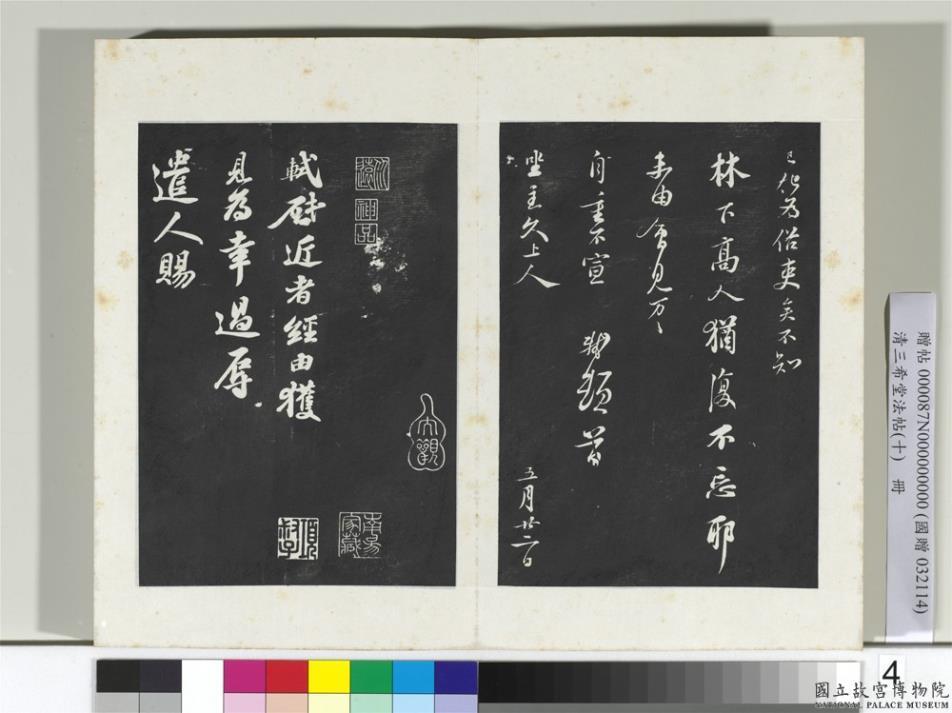 已化為俗吏矣不知
林下高人猶復不忘耶
未由會見万〻
自重不宣 軾頓首
坐主久上人 五月廿二日
大觀
神品
軾啟近者經由獲
見為幸過辱
遣人賜
贈帖 000087N000000000 (國贈 032114)
清三希堂法帖(十) 冊
4
國立故宮博物院
NATIONAL PALACE MUSEUM